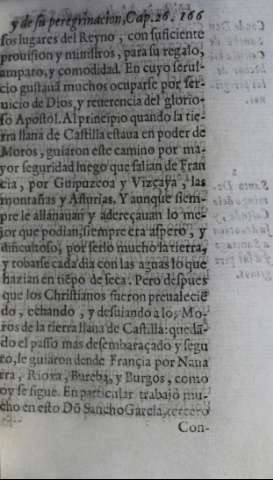 y de su peregrinacion, Cap. 26. 166
sos lugares del Reyno, con suficiente
prouision y ministros, para su regalo,
amparo, y comodidad. En cuyo serui-
cio gustaua muchos ocuparse por ser-
uicio de Dios, y reuerencia del glorio-
so Apostol. Al principio quando la tie-
rra llana de Castilla estaua en poder de
Moros, guiaron este camino por ma-
yor seguridad luego que salian de Fran
cia, por Guipuzcoa y Vizcaya, las
montañas y Asturias. Y aunque siem-
pre le allanauan y adereçauan lo me-
jor que podian, siempre era aspero, y
dificultoso, por serlo mucho la tierra,
y robarse cada dia con las aguas lo que
hazian en tiẽpo de seca. Pero despues
que los Christianos fueron preualeciẽ
do, echando, y desuiando a los Mo-
ros de la tierra llana de Castilla: quedã-
do el passo mas desembaraçado y segu
ro, le guiaron dende Francia por Naua
rra, Rioxa, Bureba, y Burgos, como
oy se sigue. En particular trabajò mu-
cho en esto Dõ Sancho Garcia, tercero
Con-